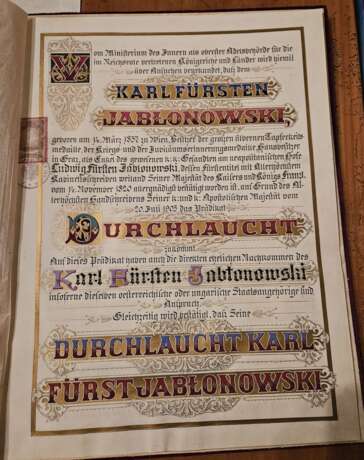 Vom Ministerium des Innern als oberster Adelsbehörde für die
im Reichsrate vertretenen Königreiche und Länder wird hiemit
über Ansuchen beurkundet, daß dem
KARL FÜRSTEN
JABŁONOWSKI,
geboren am 14. März 1857 in Wien, Besitzer der großen silbernen Tapferkeits-
medaille, der Kriegs- und der Jubiläumserinnerungsmedaille Hausbesitzer
in Graz, als Enkel des gewesenen k. k. Gesandten am neapolitanischen Hofe
Ludwig Fürsten Jabłonowski, dessen Fürstentitel mit Allerhöchstem
Kabinetschreiben weiland Seiner Majestät des Kaisers und Königs Franz I.
vom 14. November 1820 allergnädigst bestätigt worden ist, auf Grund des Al-
lerhöchsten Handschreibens Seiner k. und k. Apostolischen Majestät vom
20. Juni 1905 das Prädikat
DURCHLAUCHT
zukommt.
Auf dieses Prädikat haben auch die direkten ehelichen Nachkommen des
Karl Fürsten Jabłonowski
insoferne dieselben oesterreichische oder ungarische Staatsangehörige sind
Anspruch.
Gleichzeitig wird bestätigt, daß Seine
DURCHLAUCHT KARL
FÜRST JABŁONOWSKI